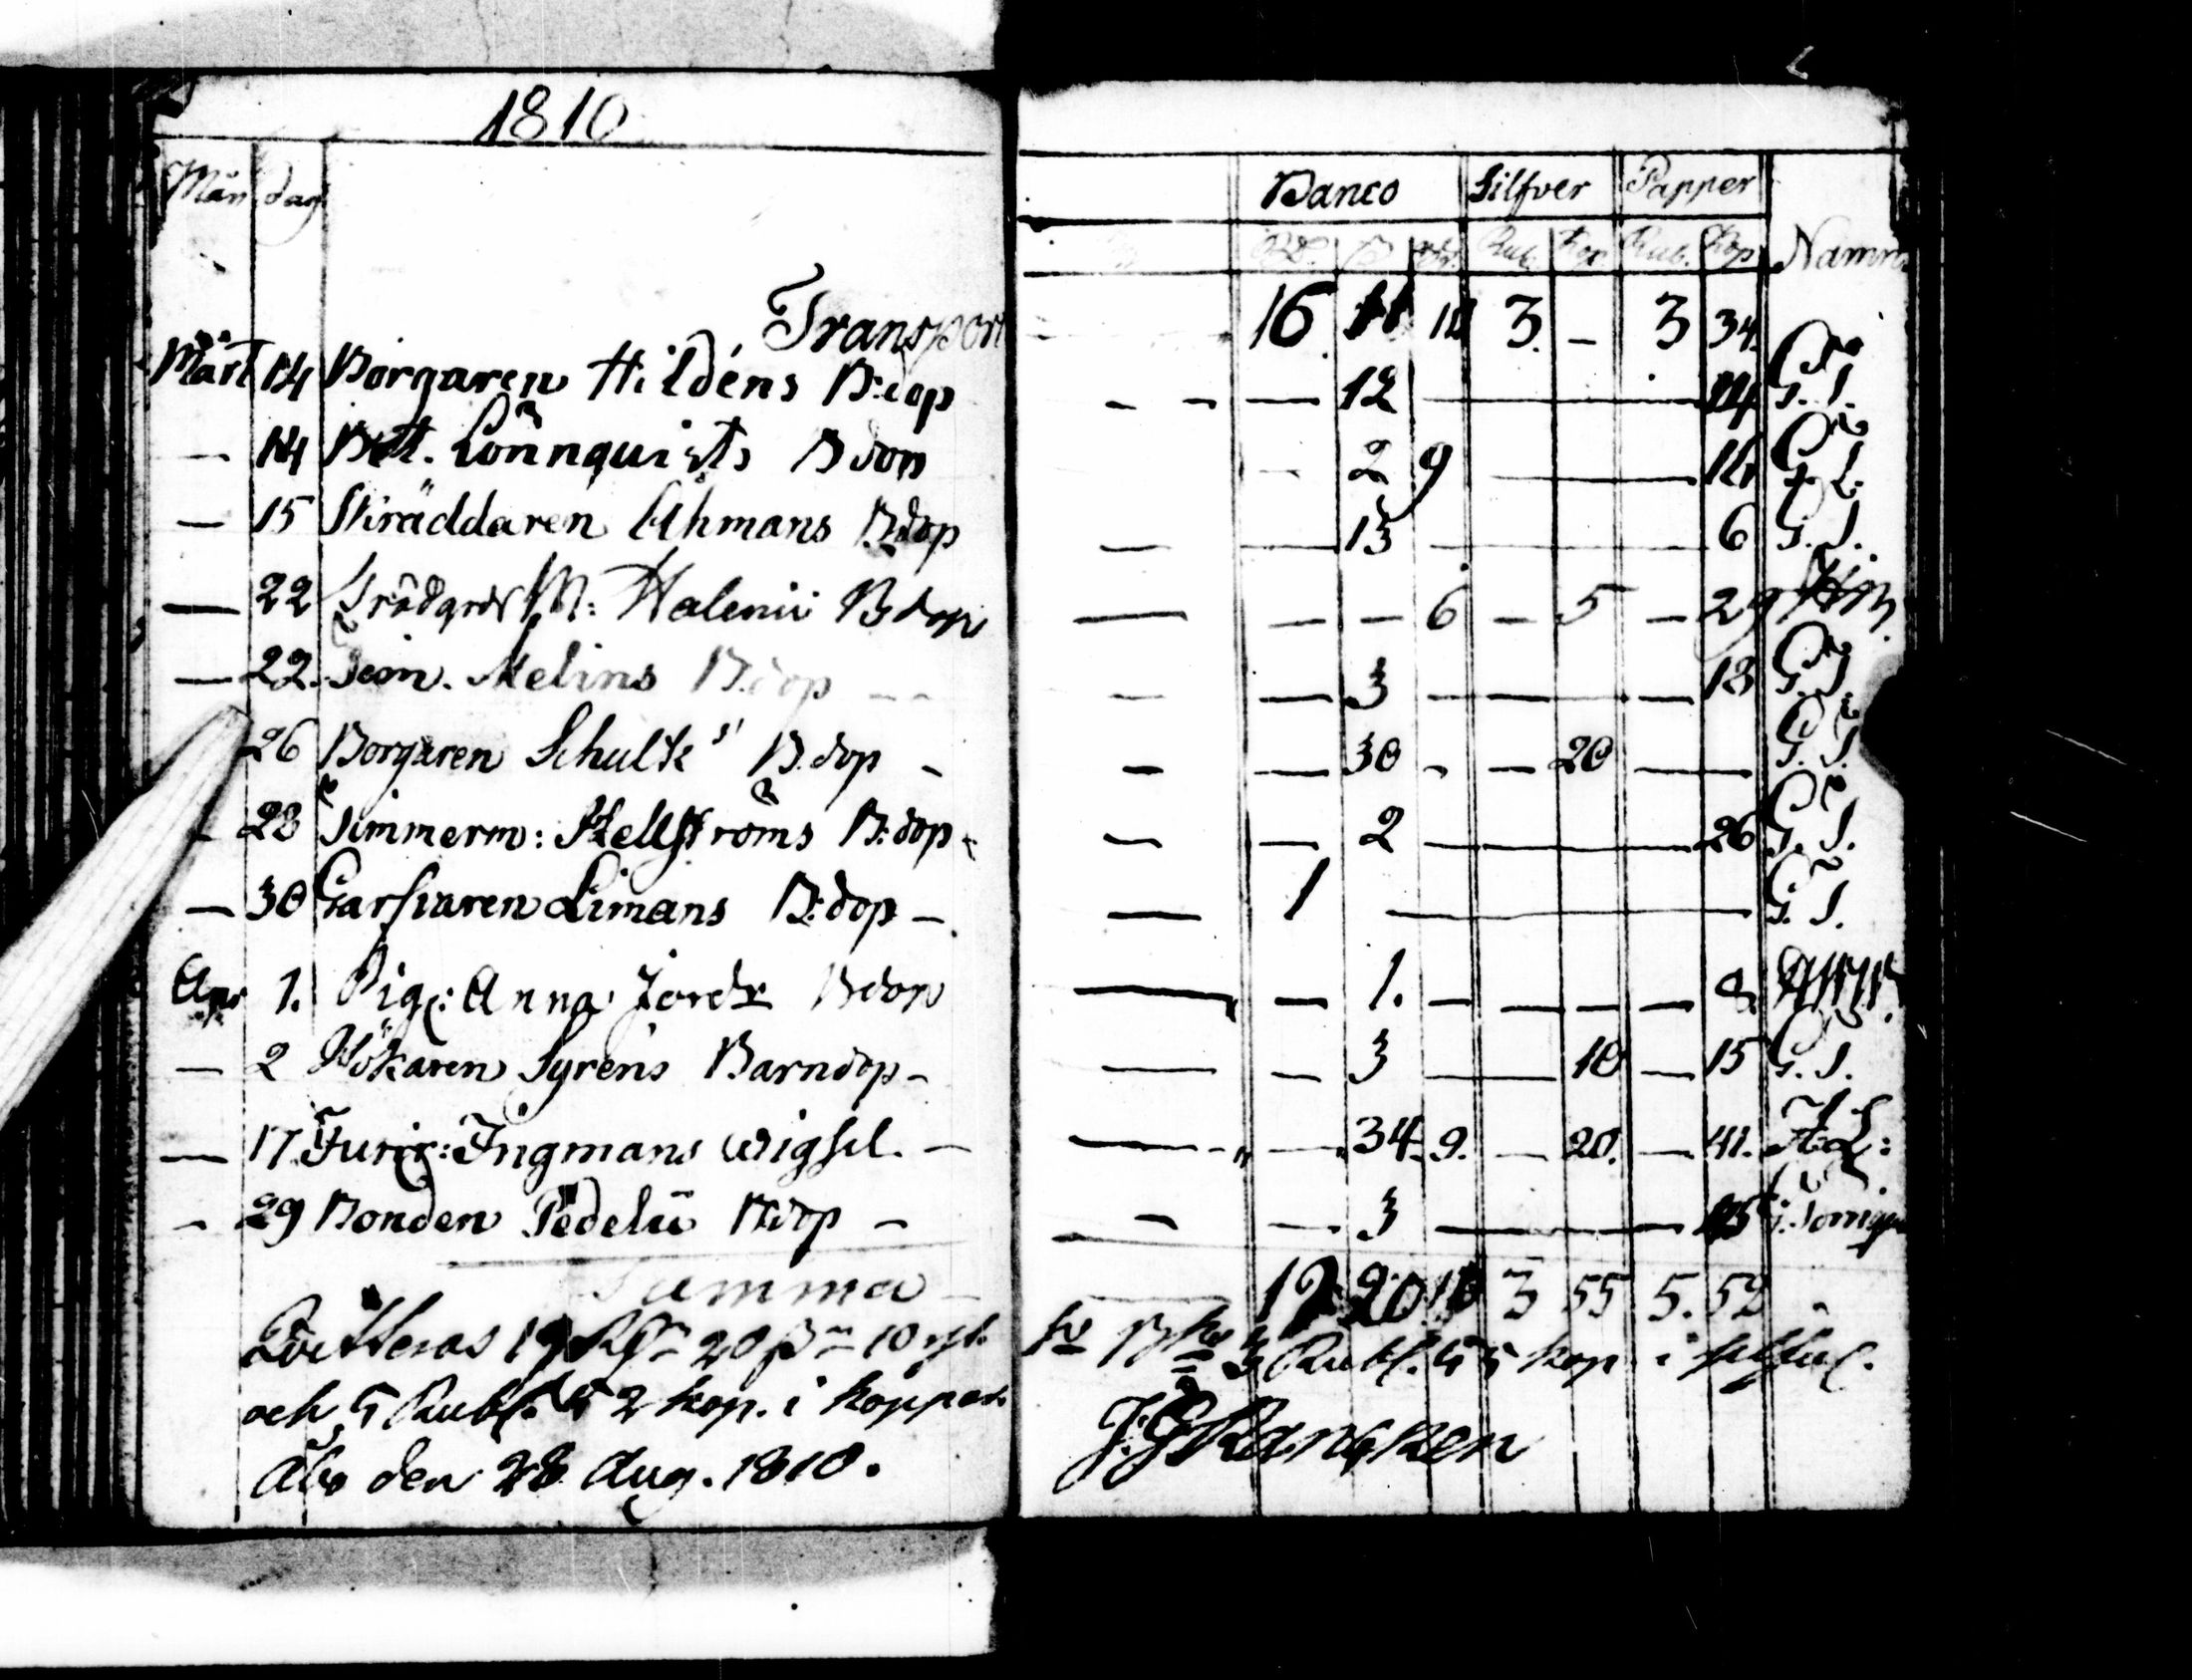 1810
Mån dag Banco Silfver Papper Namn
Rub. Kop. Rub. Kop
Transport 16 11 10 3. — 3 34.
Mart 14 Borgaren Hildéns B:dop — 12 — 14 G. T.
— 14 Bet. Lönnquists Bdop — 2 9 — 14
— 15 Skräddaren Åhmans B:dop — 13 — 6 G. T.
— 22 M: Walenii Bdop — — 6 — 5 — 29
— 22. Tim. Melins B.dop — 3 — 18 G. T.
26 Borgaren Schultz' B.dop — 30 — — 20 — G. T.
— 28 Timmerm: Hellströms B:dop — 2 — 26 G. T.
— 30 Garfvaren Limans B:dop — 1 — G. T.
Apr 1. Pig: Anna Jordr Bdop — 1. — — — — 8.
— 2 Hökaren Syréns Barndop — 3 — 10 — 15 G. T.
— 17 Furir: Ingmans wigsel. — 34. 9. — 20. — 41.
— 29 Bonden Pedelii B:dop — 3 — 15
Summa 19 20 10 3 55 5. 52
Qvitteras 19 Rd 20 ß 10 rst. Bko 3 Rubl. 55 kop i silfver.
och 5 Rubl. 52 kop. i koppar
Åbo den 28 Aug. 1810. J.G Rancken